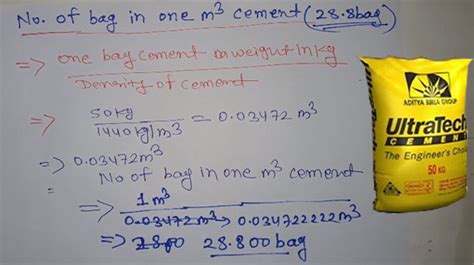 No. of bag in one m³ cement (28.8bag)
=> one bag cement in weight in kg
Density of cement
=> 50kg
1440 kg/m³ = 0.03472 m³
=> 0.03472m³
No of bag in one m³ cement
=> 1 m³
0.03472m³ 0.034722222m³
=> 28.800bag
ADITYA BIRLA GROUP
UltraTech
CEMENT
The Engineer's Choice
50 KG